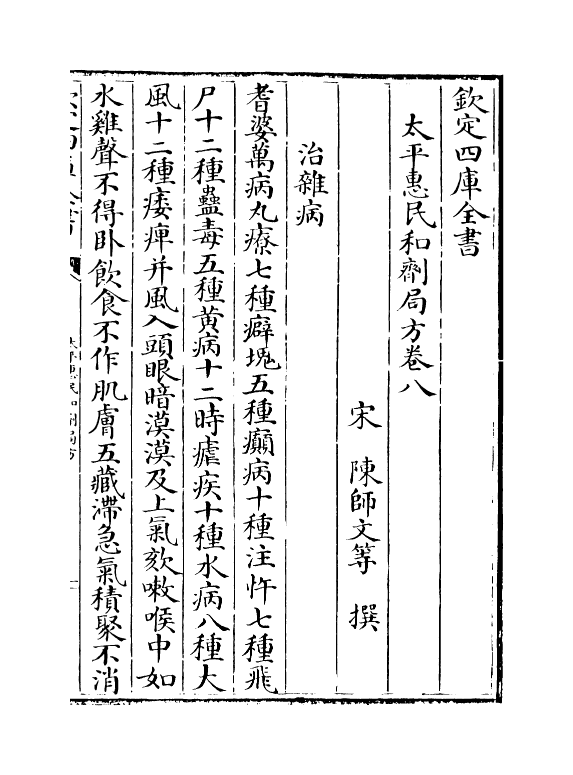 欽定四庫全書
太平惠民和劑局方卷八
宋　陳師文等　撰
治雜病
耆婆萬病丸療七種癖塊五種癲病十種注忤七種飛
尸十二種蠱毒五種黄病十二時瘧疾十種水病八種大
風十二種痿痺并風入頭眼暗漠漠及上氣欬嗽喉中如
水雞聲不得卧飲食不作肌膚五藏滯急氣積聚不消
太平惠民和劑局方